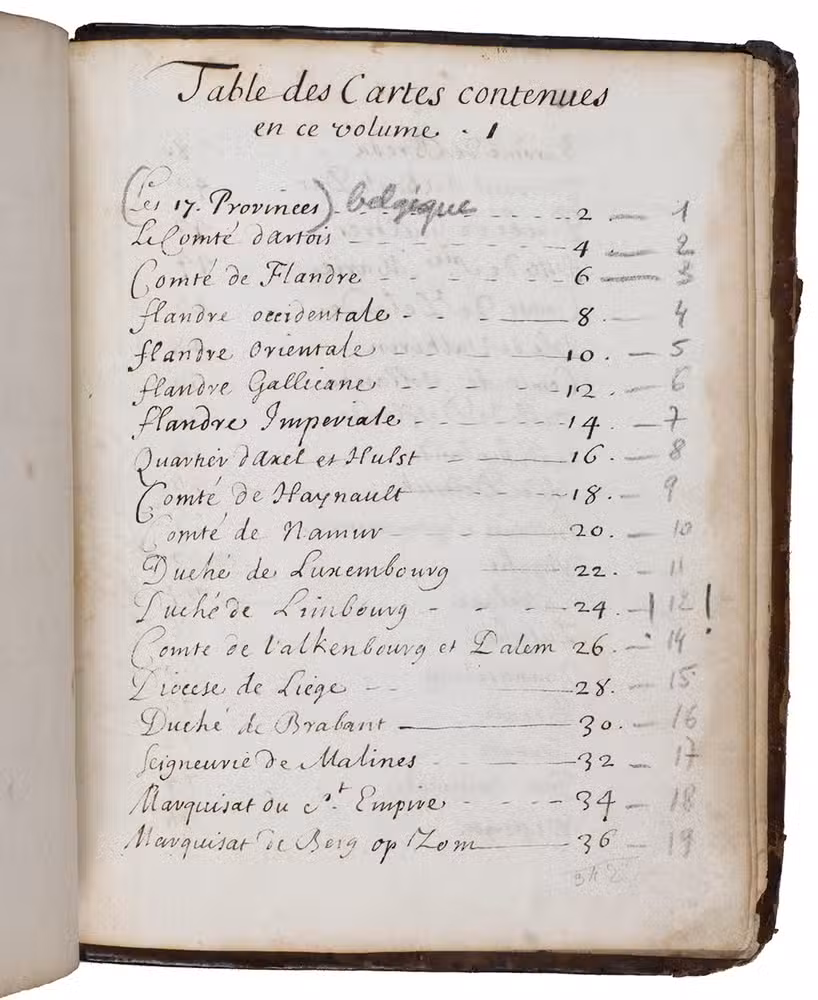 Table des Cartes contenues
en ce volume . 1
(Les 17. Provinces) belgique - - - - 2 — 1
Le Comté d'Artois - - - - 4 — 2
Comté de Flandre - - - - 6 — 3
flandre occidentale - - - - 8 . — 4
flandre Orientale - - - - 10 . — 5
flandre Gallicane - - - - 12 . — 6
flandre Imperiale - - - - 14 . — 7
Quartier d'Axel et Hulst - - - 16 . — 8
Comté de Haynault - - - 18 . — 9
Comté de Namur - - - 20 . — 10
Duché de Luxembourg — 22 . — 11
Duché de Limbourg - - - 24 . — | 12 | !
Comte de Valkenbourg et Dalem 26 . — 14
Diocese de Liege - - — 28 . — 15
Duché de Brabant — 30 . — 16
Seigneurie de Malines - - - 32 — 17
Marquisat du St Empire - - - 34 — 18
Marquisat de Berg op Zom — 36 — 19